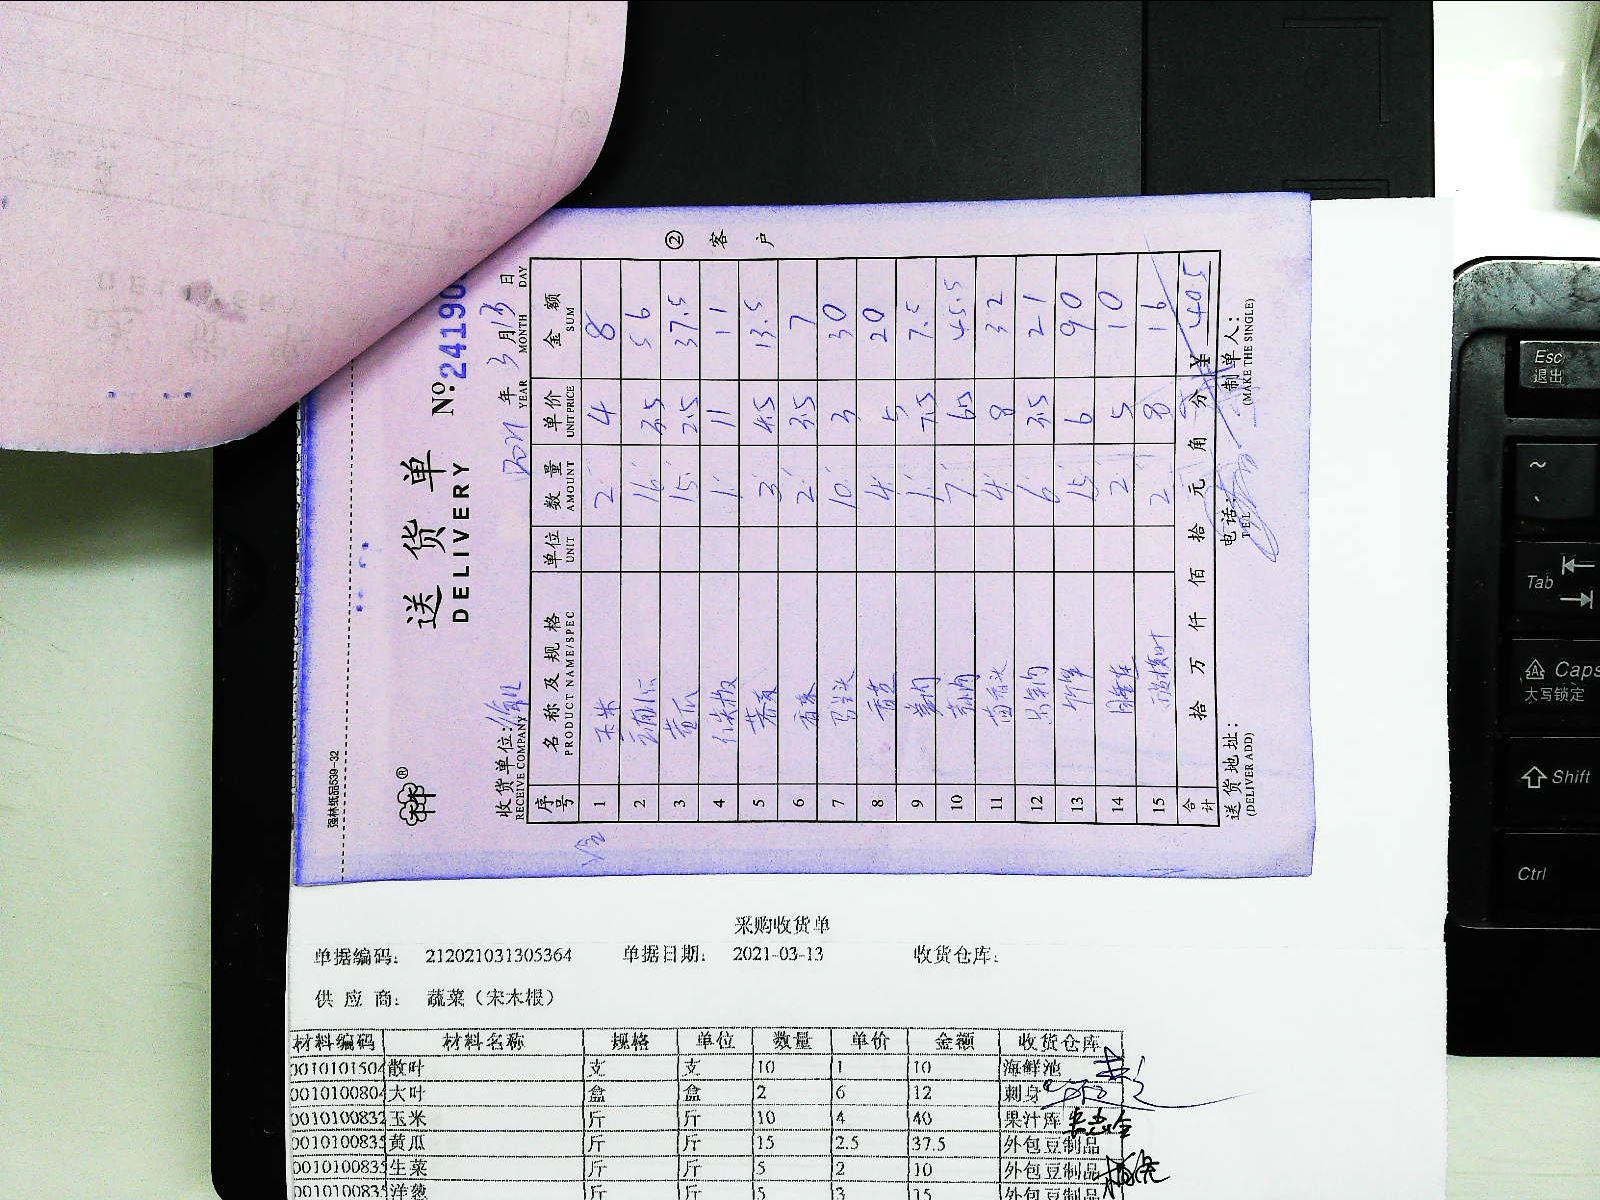 强林纸品539-32
送货单
DELIVERY
No. 24190
收货单位:
RECEIVE COMPANY
2021年3月13日
YEAR MONTH DAY
② 客户
序号 名称及规格 单位 数量 单价 金额
PRODUCT NAME/SPEC UNIT AMOUNT UNIT PRICE SUM
1 玉米 2 4 8
2 16 3.5 56
3 黄瓜 15 2.5 37.5
4 1 11 11
5 3 4.5 13.5
6 香菜 2 3.5 7
7 10 3 30
8 香芹 4 5 20
9 姜肉 1 7.5 7.5
10 蒜肉 7 6.5 45.5
11 4 8 32
12 6 3.5 21
13 15 6 90
14 2 5 10
15 2 8 16
合计 拾 万 仟 佰 拾 元 角 分 ¥ 405
送货地址: 电话: 制单人:
(DELIVER ADD) TEL (MAKE THE SINGLE)
采购收货单
单据编码: 212021031305364 单据日期: 2021-03-13 收货仓库:
供应商: 蔬菜(宋木根)
材料编码 材料名称 规格 单位 数量 单价 金额 收货仓库
0010101504 散叶 支 支 10 1 10 海鲜池
0010100804 大叶 盒 盒 2 6 12 刺身
0010100832 玉米 斤 斤 10 4 40 果汁库
0010100835 黄瓜 斤 斤 15 2.5 37.5 外包豆制品
0010100835 生菜 斤 斤 5 2 10 外包豆制品
0010100835 洋葱 斤 斤 5 3 15 外包豆制品
Esc
退出
~
Tab
Caps
大写锁定
Shift
Ctrl